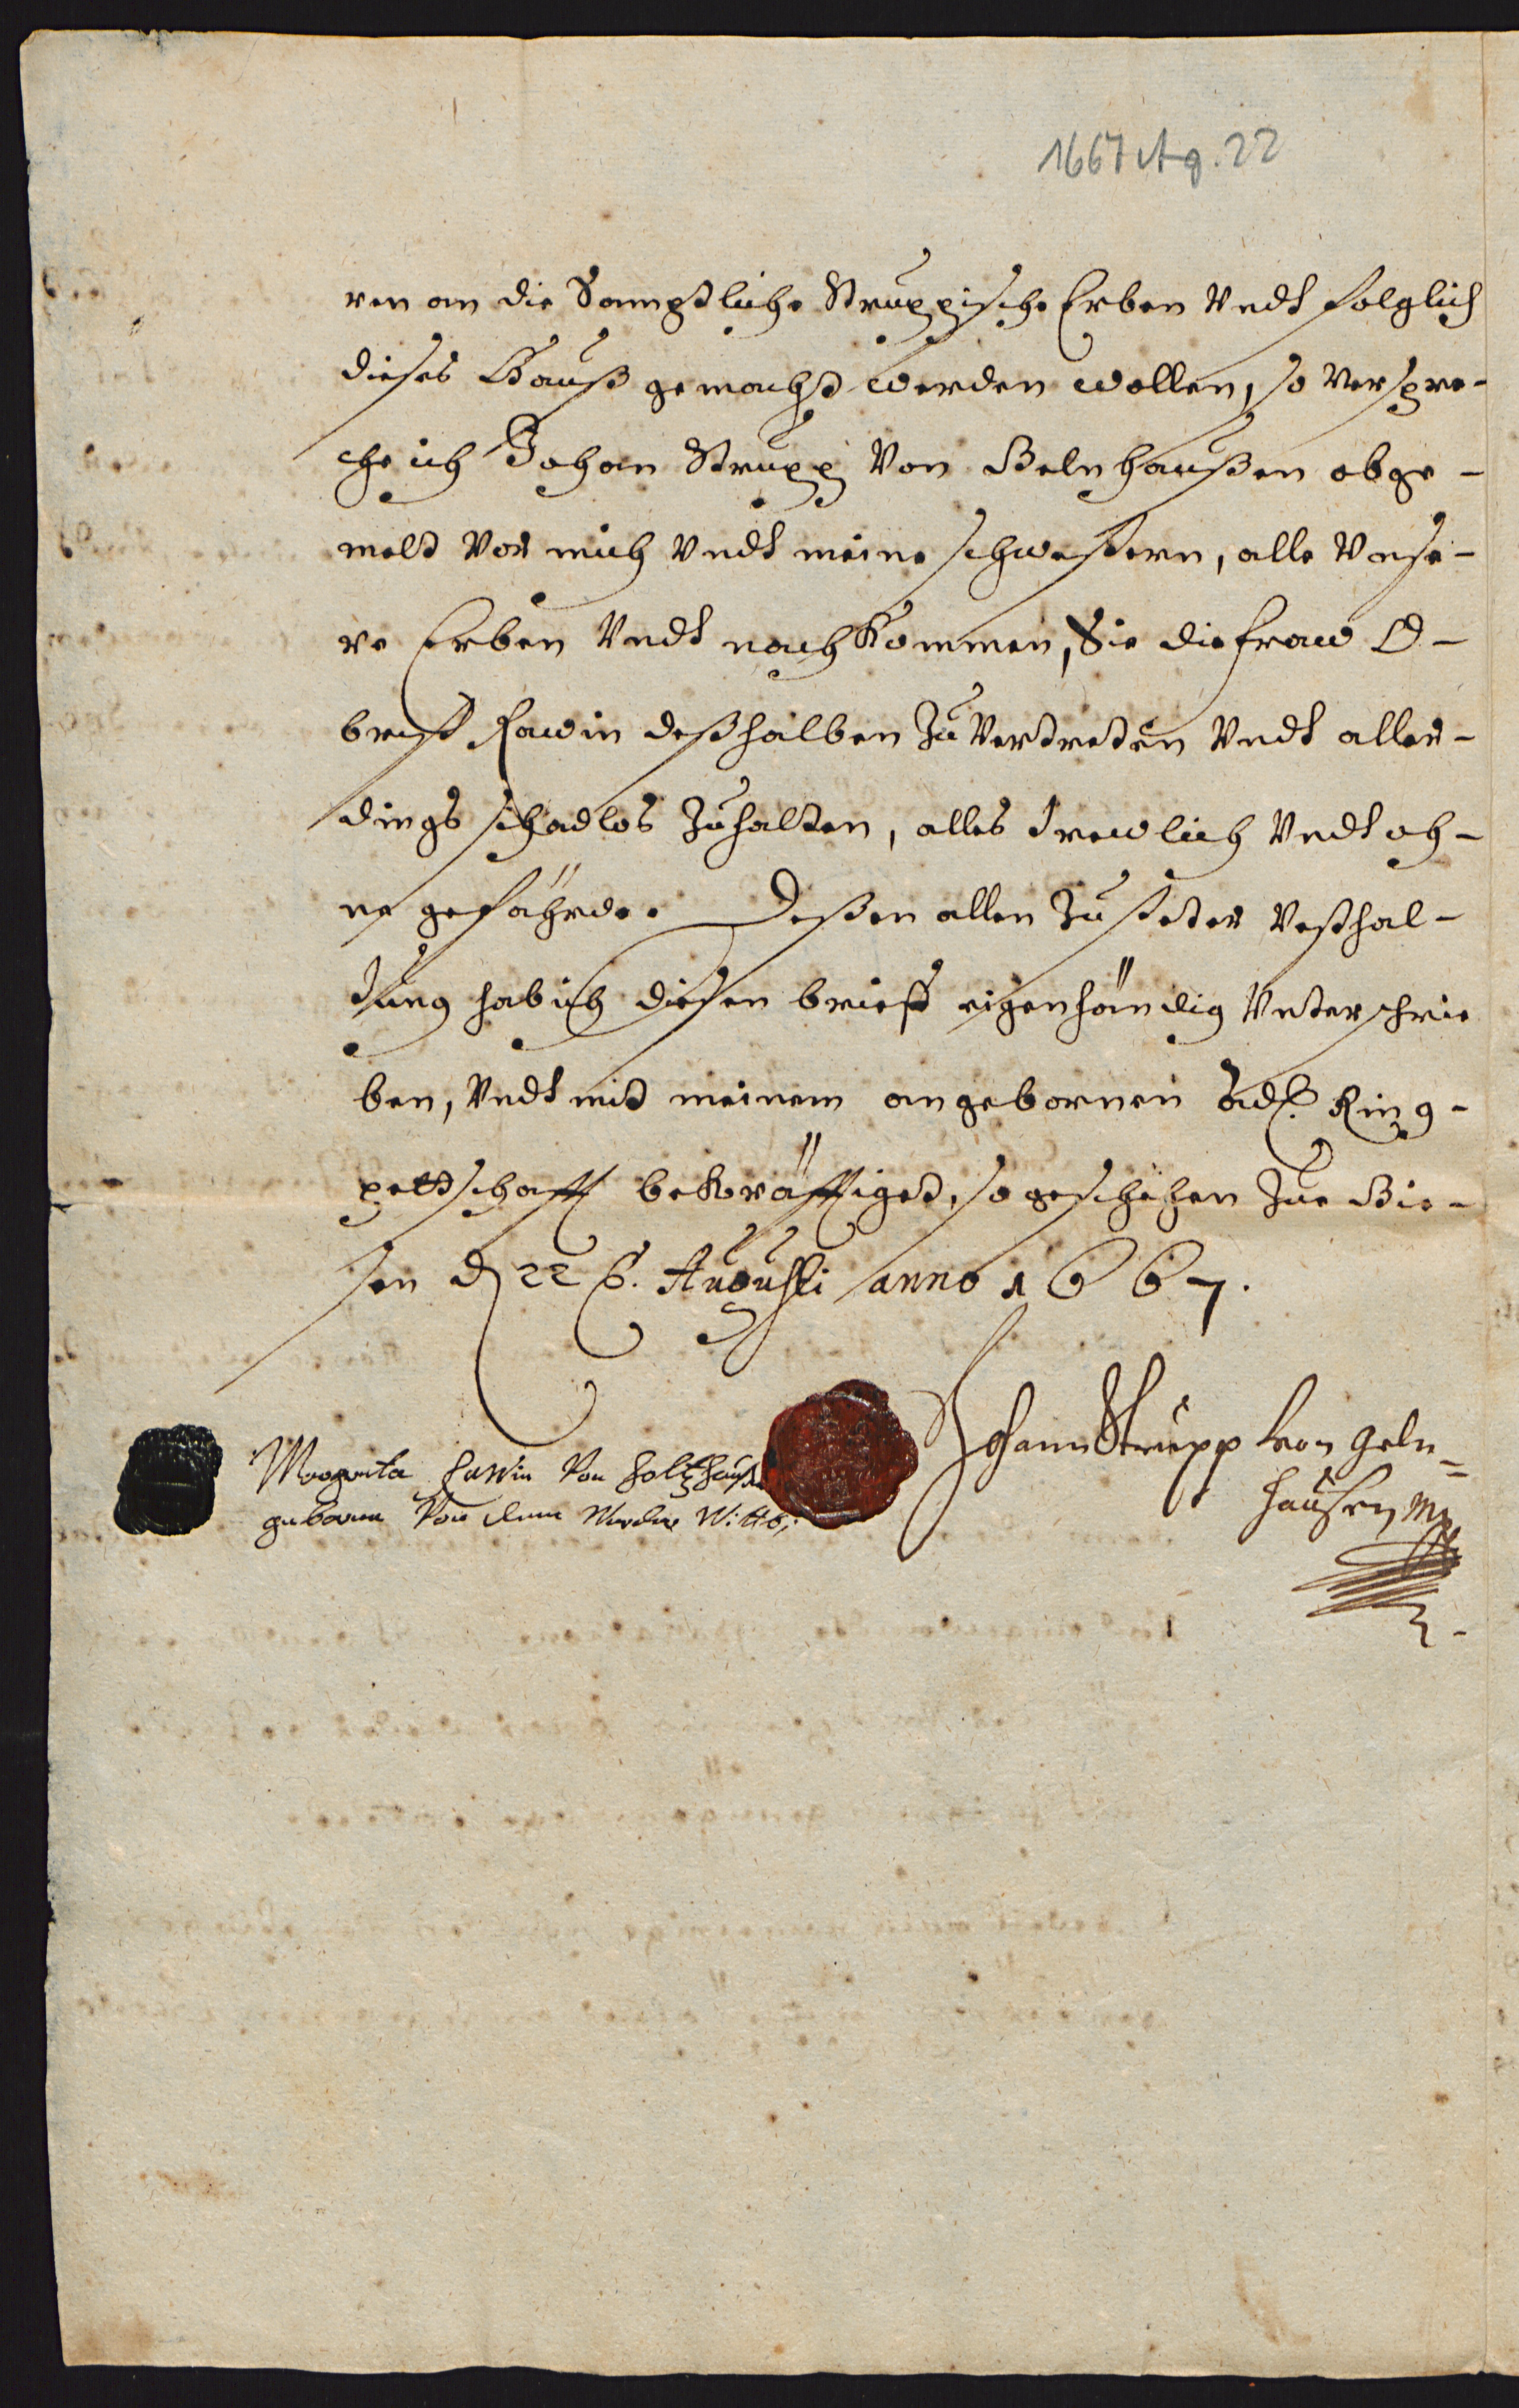 1667 Ag. 22
ren an die Samptliche Struppische Erben Undt folglich
dieses Hauß gemacht werden wollen, so Verspre-
che ich Johan Strupp Von Gelnhaußen obge-
melt Vor mich Undt meine schwestern, alle Unse-
re Erben Undt nachkommen, Sie die fraw O-
brist Rawin deßhalben Zu Vertreten Undt aller-
dings schadlos Zuhalten, alles trewlich Undt oh-
ne gefährde. Deßen allen Zu steter Vesthal-
tung hab ich diesen brieff eigenhändig Unterschrie
ben, Undt mit meinem angebornen Adl. Ring-
pettschafft bekräfftiget, so geschehen Zue Gie-
sen d 22 t. Augusti anno 1667.
Johann Strupp von Geln=
hausen mp
Margreta Rawin Von Holtzhaußen
geborne Von Wittbe